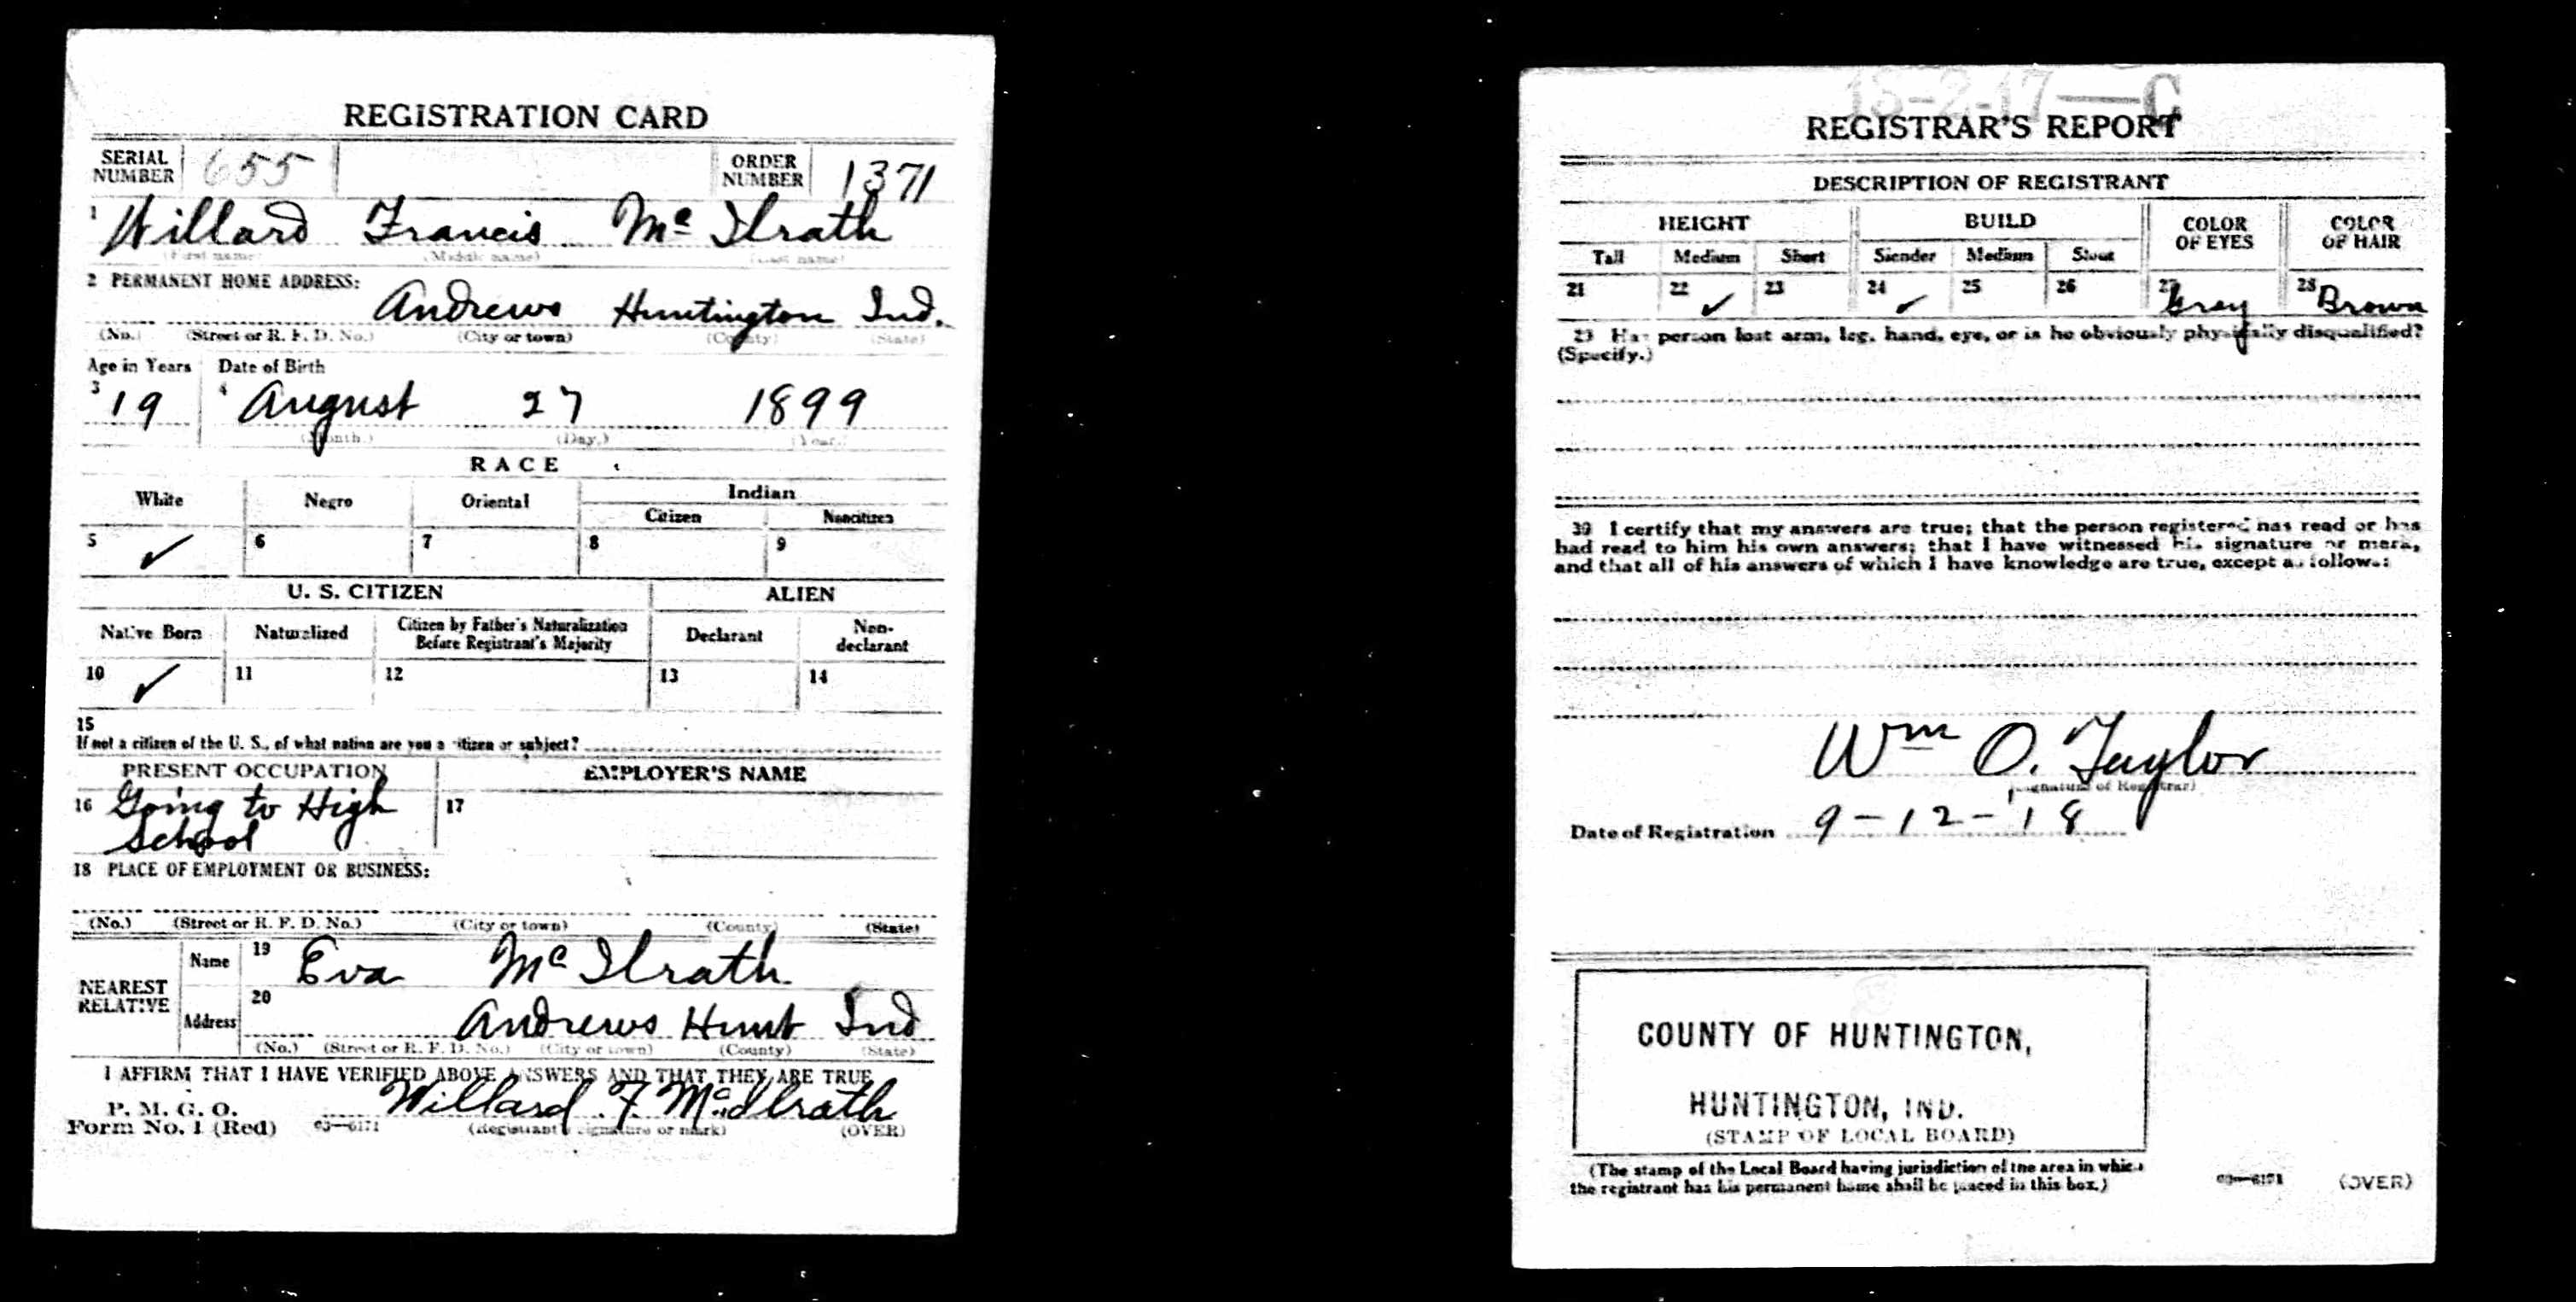 REGISTRATION CARD
SERIAL NUMBER 655 ORDER NUMBER 1371
1 Willard Francis Mc Ilrath
(First name) (Middle name) (Last name)
2 PERMANENT HOME ADDRESS:
Andrews Huntington Ind.
(No.) (Street or R. F. D. No.) (City or town) (County) (State)
Age in Years Date of Birth
3 19 4 August 27 1899
(Month.) (Day.) (Year.)
RACE
White Negro Oriental Indian
Citizen Noncitizen
5 ✓ 6 7 8 9
U. S. CITIZEN ALIEN
Native Born Naturalized Citizen by Father's Naturalization Before Registrant's Majority Declarant Non-declarant
10 ✓ 11 12 13 14
15
If not a citizen of the U. S., of what nation are you a citizen or subject?
PRESENT OCCUPATION EMPLOYER'S NAME
16 Going to High 17
School
18 PLACE OF EMPLOYMENT OR BUSINESS:
(No.) (Street or R. F. D. No.) (City or town) (County) (State)
NEAREST RELATIVE
Name 19 Eva Mc Ilrath
Address 20 Andrews Hunt Ind
(No.) (Street or R. F. D. No.) (City or town) (County) (State)
I AFFIRM THAT I HAVE VERIFIED ABOVE ANSWERS AND THAT THEY ARE TRUE
P. M. G. O.
Form No. 1 (Red) 03—6171 Willard F. McIlrath
(Registrant's signature or mark) (OVER)
13-2-17—C
REGISTRAR'S REPORT
DESCRIPTION OF REGISTRANT
HEIGHT BUILD COLOR OF EYES COLOR OF HAIR
Tall Medium Short Slender Medium Stout
21 22 ✓ 23 24 ✓ 25 26 27 Grey 28 Brown
29 Has person lost arm, leg, hand, eye, or is he obviously physically disqualified?
(Specify.)
30 I certify that my answers are true; that the person registered has read or has
had read to him his own answers; that I have witnessed his signature or mark,
and that all of his answers of which I have knowledge are true, except as follows:
Wm O. Taylor
(Signature of Registrar)
Date of Registration 9-12-'18
COUNTY OF HUNTINGTON,
HUNTINGTON, IND.
(STAMP OF LOCAL BOARD)
(The stamp of the Local Board having jurisdiction of the area in which
the registrant has his permanent home shall be placed in this box.)
03—6171 (OVER)